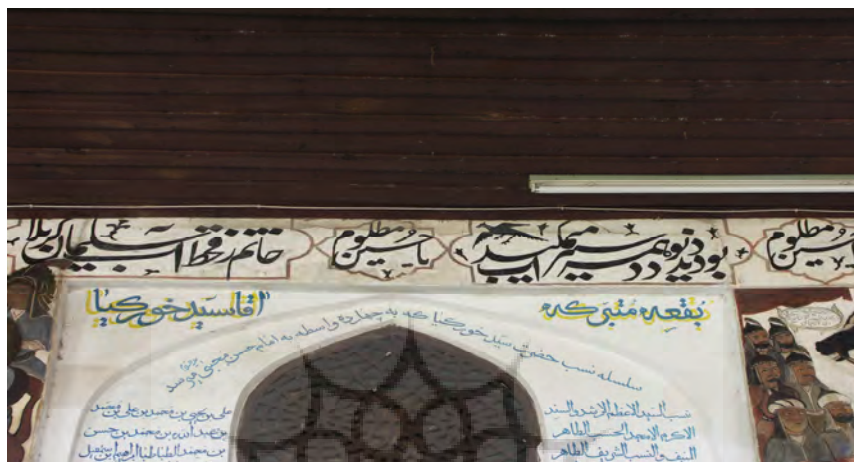 بودند دیو و دد همه سیراب و میمکید
یا حسین مظلوم
خاتم ز قحط آب سلیمان کربلا
یا حسین مظلوم
بقعه متبرکه
"آقا سید خور کیا"
سلسله نسب حضرت سید خور کیا که به چهارده واسطه به امام حسن مجتبی میرسد
نسب السید الاعظم الارشد والسند
الاکرم الامجد الحسنی الطاهر
النسب الشریف الطاهر
علی بن یحیی بن محمد بن علی بن محمد
بن عبدالله بن محمد بن حسن
بن محمد الطباطبا ابراهیم بن اسمعیل